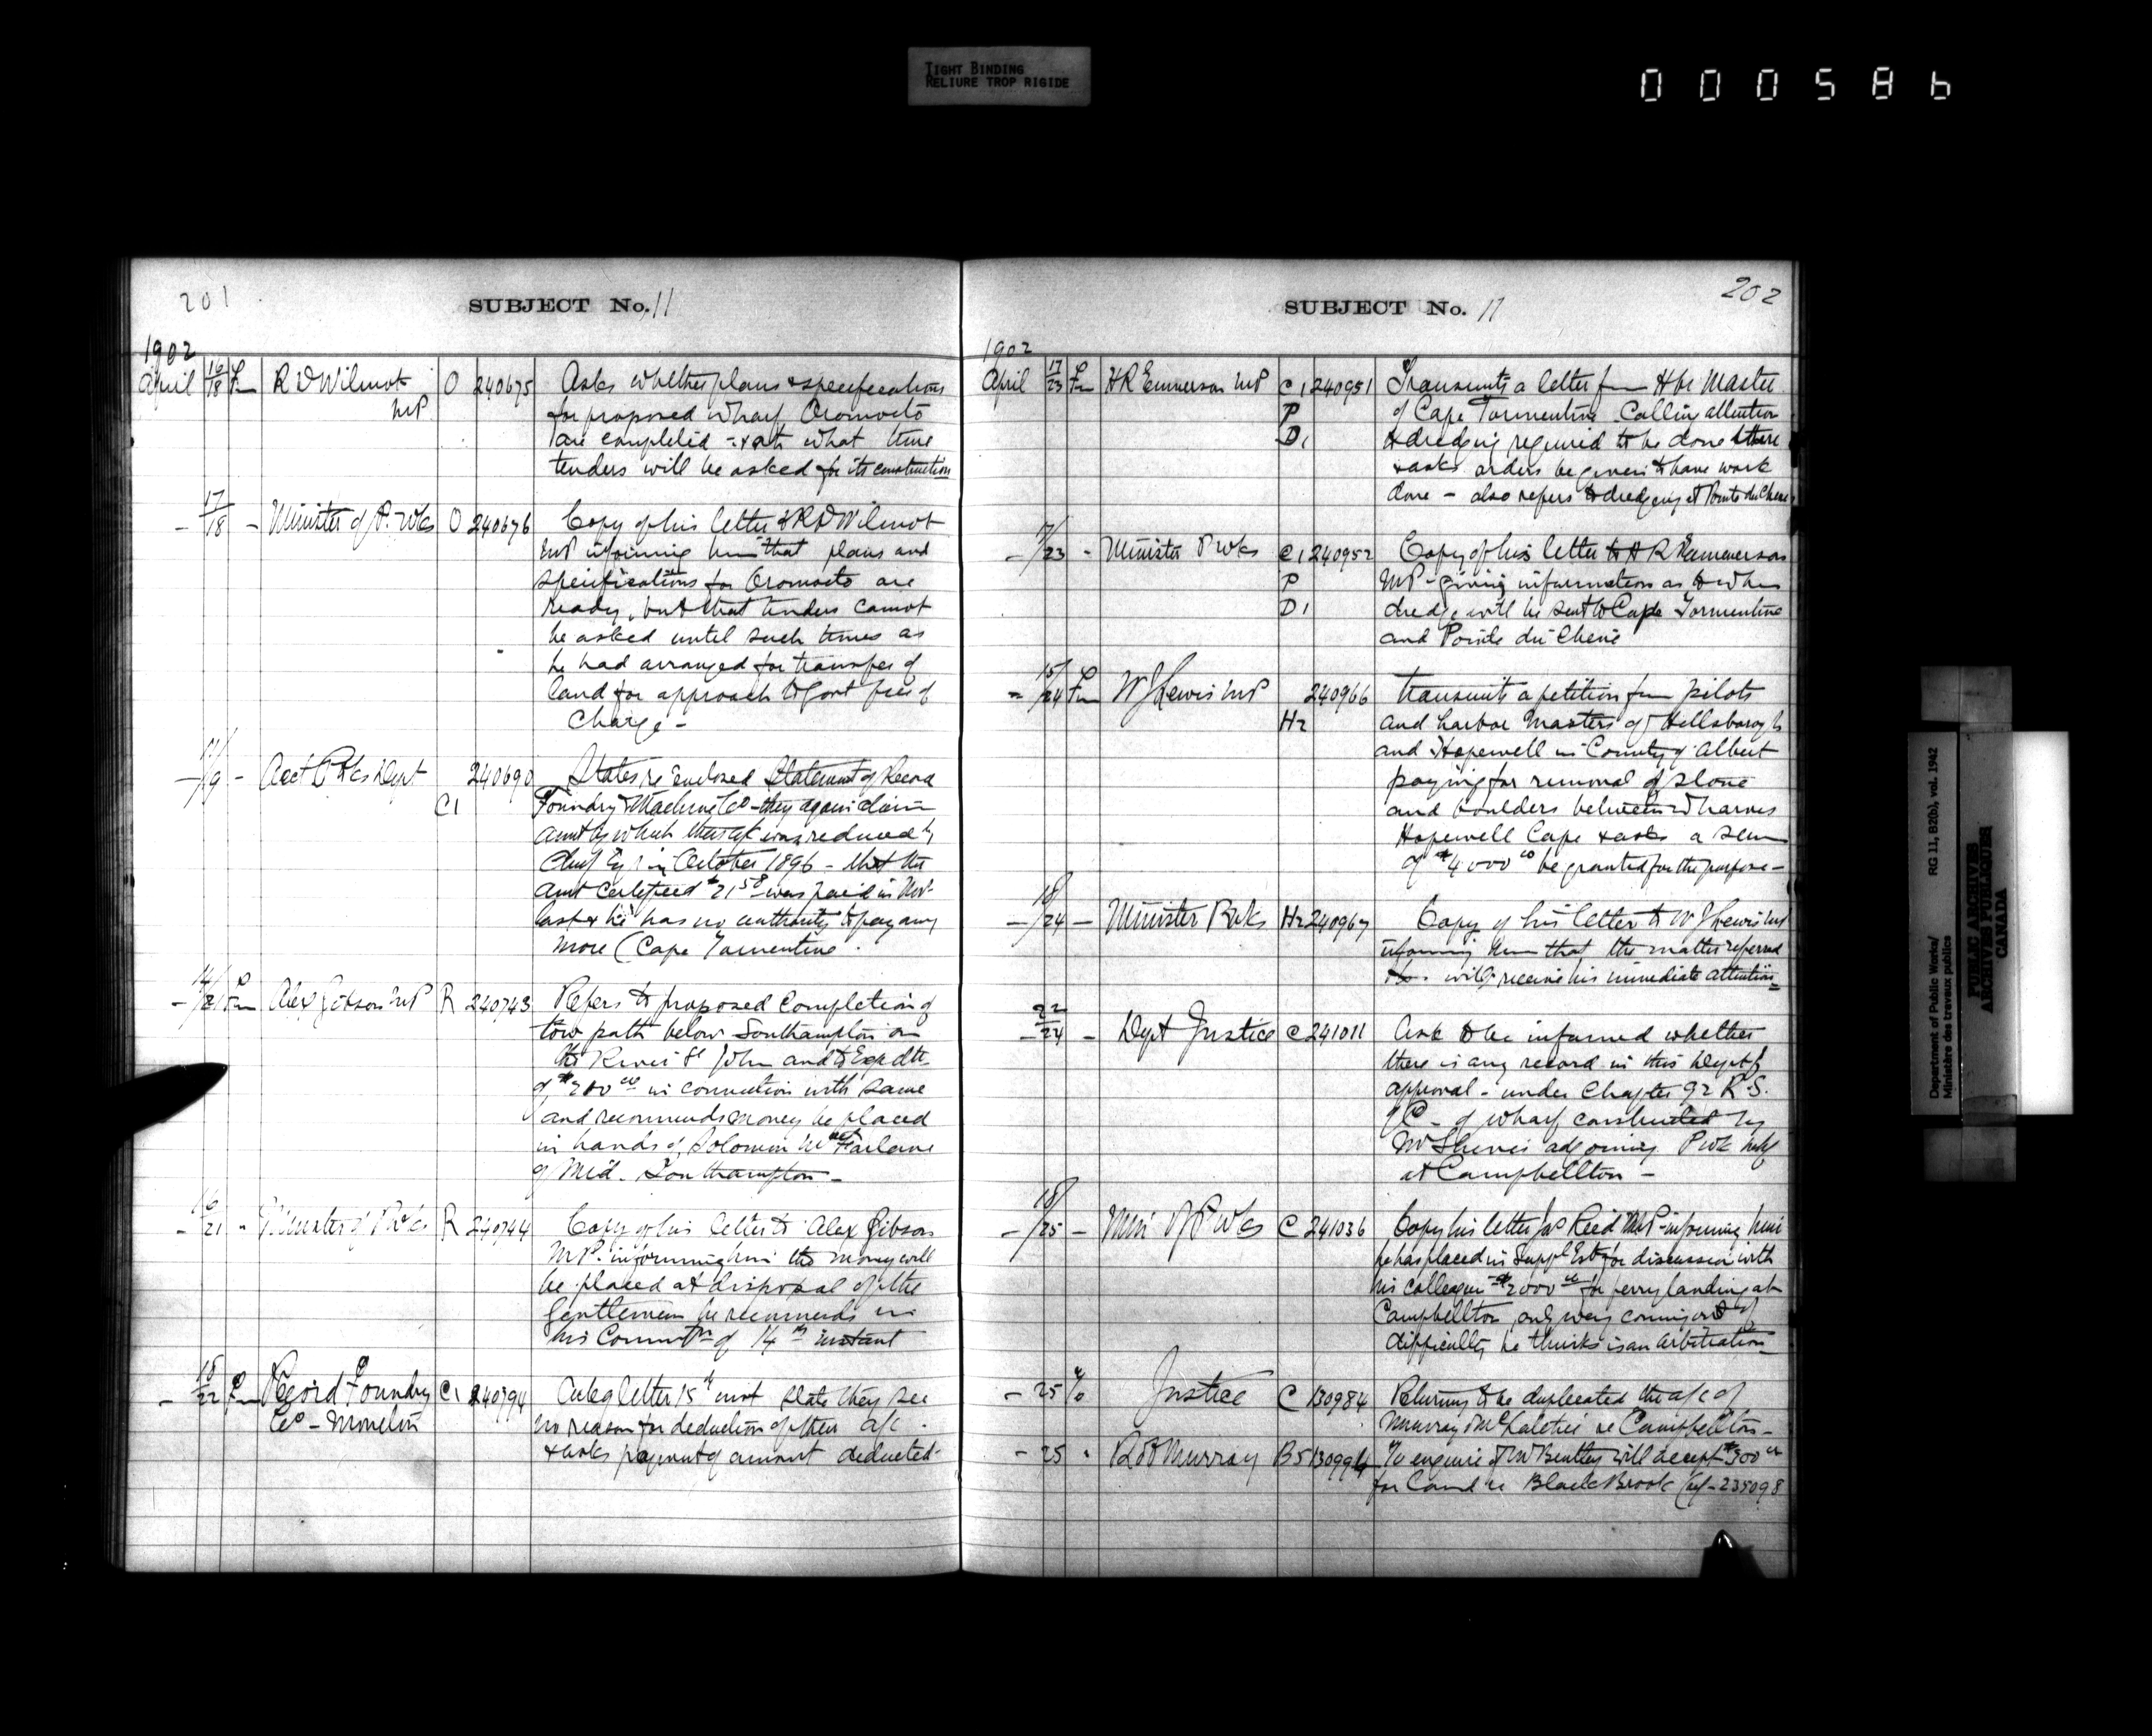 TIGHT BINDING
RELIURE TROP RIGIDE
000586
201
SUBJECT No. 11
1902
April 16/18 Fm R D Wilmot O 240675 Asks whether plans & specifications
MP for proposed wharf Oromocto
are completed - & at what time
tenders will be asked for its construction
- 17/18 - Minister of P. Wks O 240676 Copy of his letter to R D Wilmot
MP informing him that plans and
specifications for Oromocto are
ready, but that tenders cannot
be asked until such times as
he had arranged for transfer of
land for approach to Govt free of
charge -
- 17/19 - Acct P Wks Dept 240690 States re enclosed statement of Record
C1 Foundry & Machine Co - they again claim
amt by which their a/c was reduced by
Chief Eg r in October 1896 - that the
amt certified $21 58 was paid in Novr
last & he has no authority to pay any
more (Cape Tormentine
- 14/21 Fm Alex Gibson MP R 240743 Refers to proposed completion of
tow path below Southampton on
the River St John and to Expdte
of $200 00 in connection with same
and recommends money be placed
in hands of Solomon McFarlane
of Mid. Southampton -
- 16/21 " Minister of P Wks R 240744 Copy of his letter to Alex Gibson
MP. informing him the money will
be placed at disposal of the
gentlemen he recommends in
his Commctn of 14th instant
- 18/22 Fm Record Foundry C1 240794 letter 15th inst state they see
Co - Moncton no reason for deduction of their a/c.
& asks payment of amount deducted -
202
SUBJECT No. 11
1902
April 17/23 Fm H R Emmerson MP C1 240951 Transmits a letter from Hbr Master
P of Cape Tormentine Calling attention
D1 to dredging required to be done there
& asks orders be given to have work
done - also refers to dredging at Pointe du Chene
- 17/23 - Minister P Wks C1 240952 Copy of his letter to H R Emmerson
P MP - giving information as to when
D1 dredge will be sent to Cape Tormentine
and Pointe du Chene
- 15/24 Fm W J Lewis MP 240966 Transmits a petition from pilots
H2 and harbor masters of Hillsborough
and Hopewell in County of Albert
praying for removal of stone
and boulders between wharves
Hopewell Cape & asks a sum
of $4000 00 be granted for the purpose -
- 18/24 - Minister P Wks H2 240967 Copy of his letter to W J Lewis MP
informing him that the matter referred
to will receive his immediate attention
- 22/24 - Dept Justice C 241011 Ask to be informed whether
there is any record in this Dept of
approval - under Chapter 92 R.S.
of C - of wharf constructed by
Mr adjoining P Wk whf
at Campbellton -
- 18/25 - Min of P Wks C 241036 Copy his letter Jas Reid MP - informing him
he has placed in Suppl Est for discussion with
his colleagues $2000 00 for ferry landing at
Campbellton, only way coming out of
difficulty he thinks is an arbitration
- 25 To Justice C 130984 Returning to be duplicated the a/c of
Murray & McLatchie re Campbellton -
- 25 " R Murray B5 130994 To enquire if Mr Bentley will accept $300 00
for land re Black Brook (ref - 235098
Department of Public Works/
Ministère des travaux publics
RG 11, B2(b), vol. 1942
PUBLIC ARCHIVES
ARCHIVES PUBLIQUES
CANADA